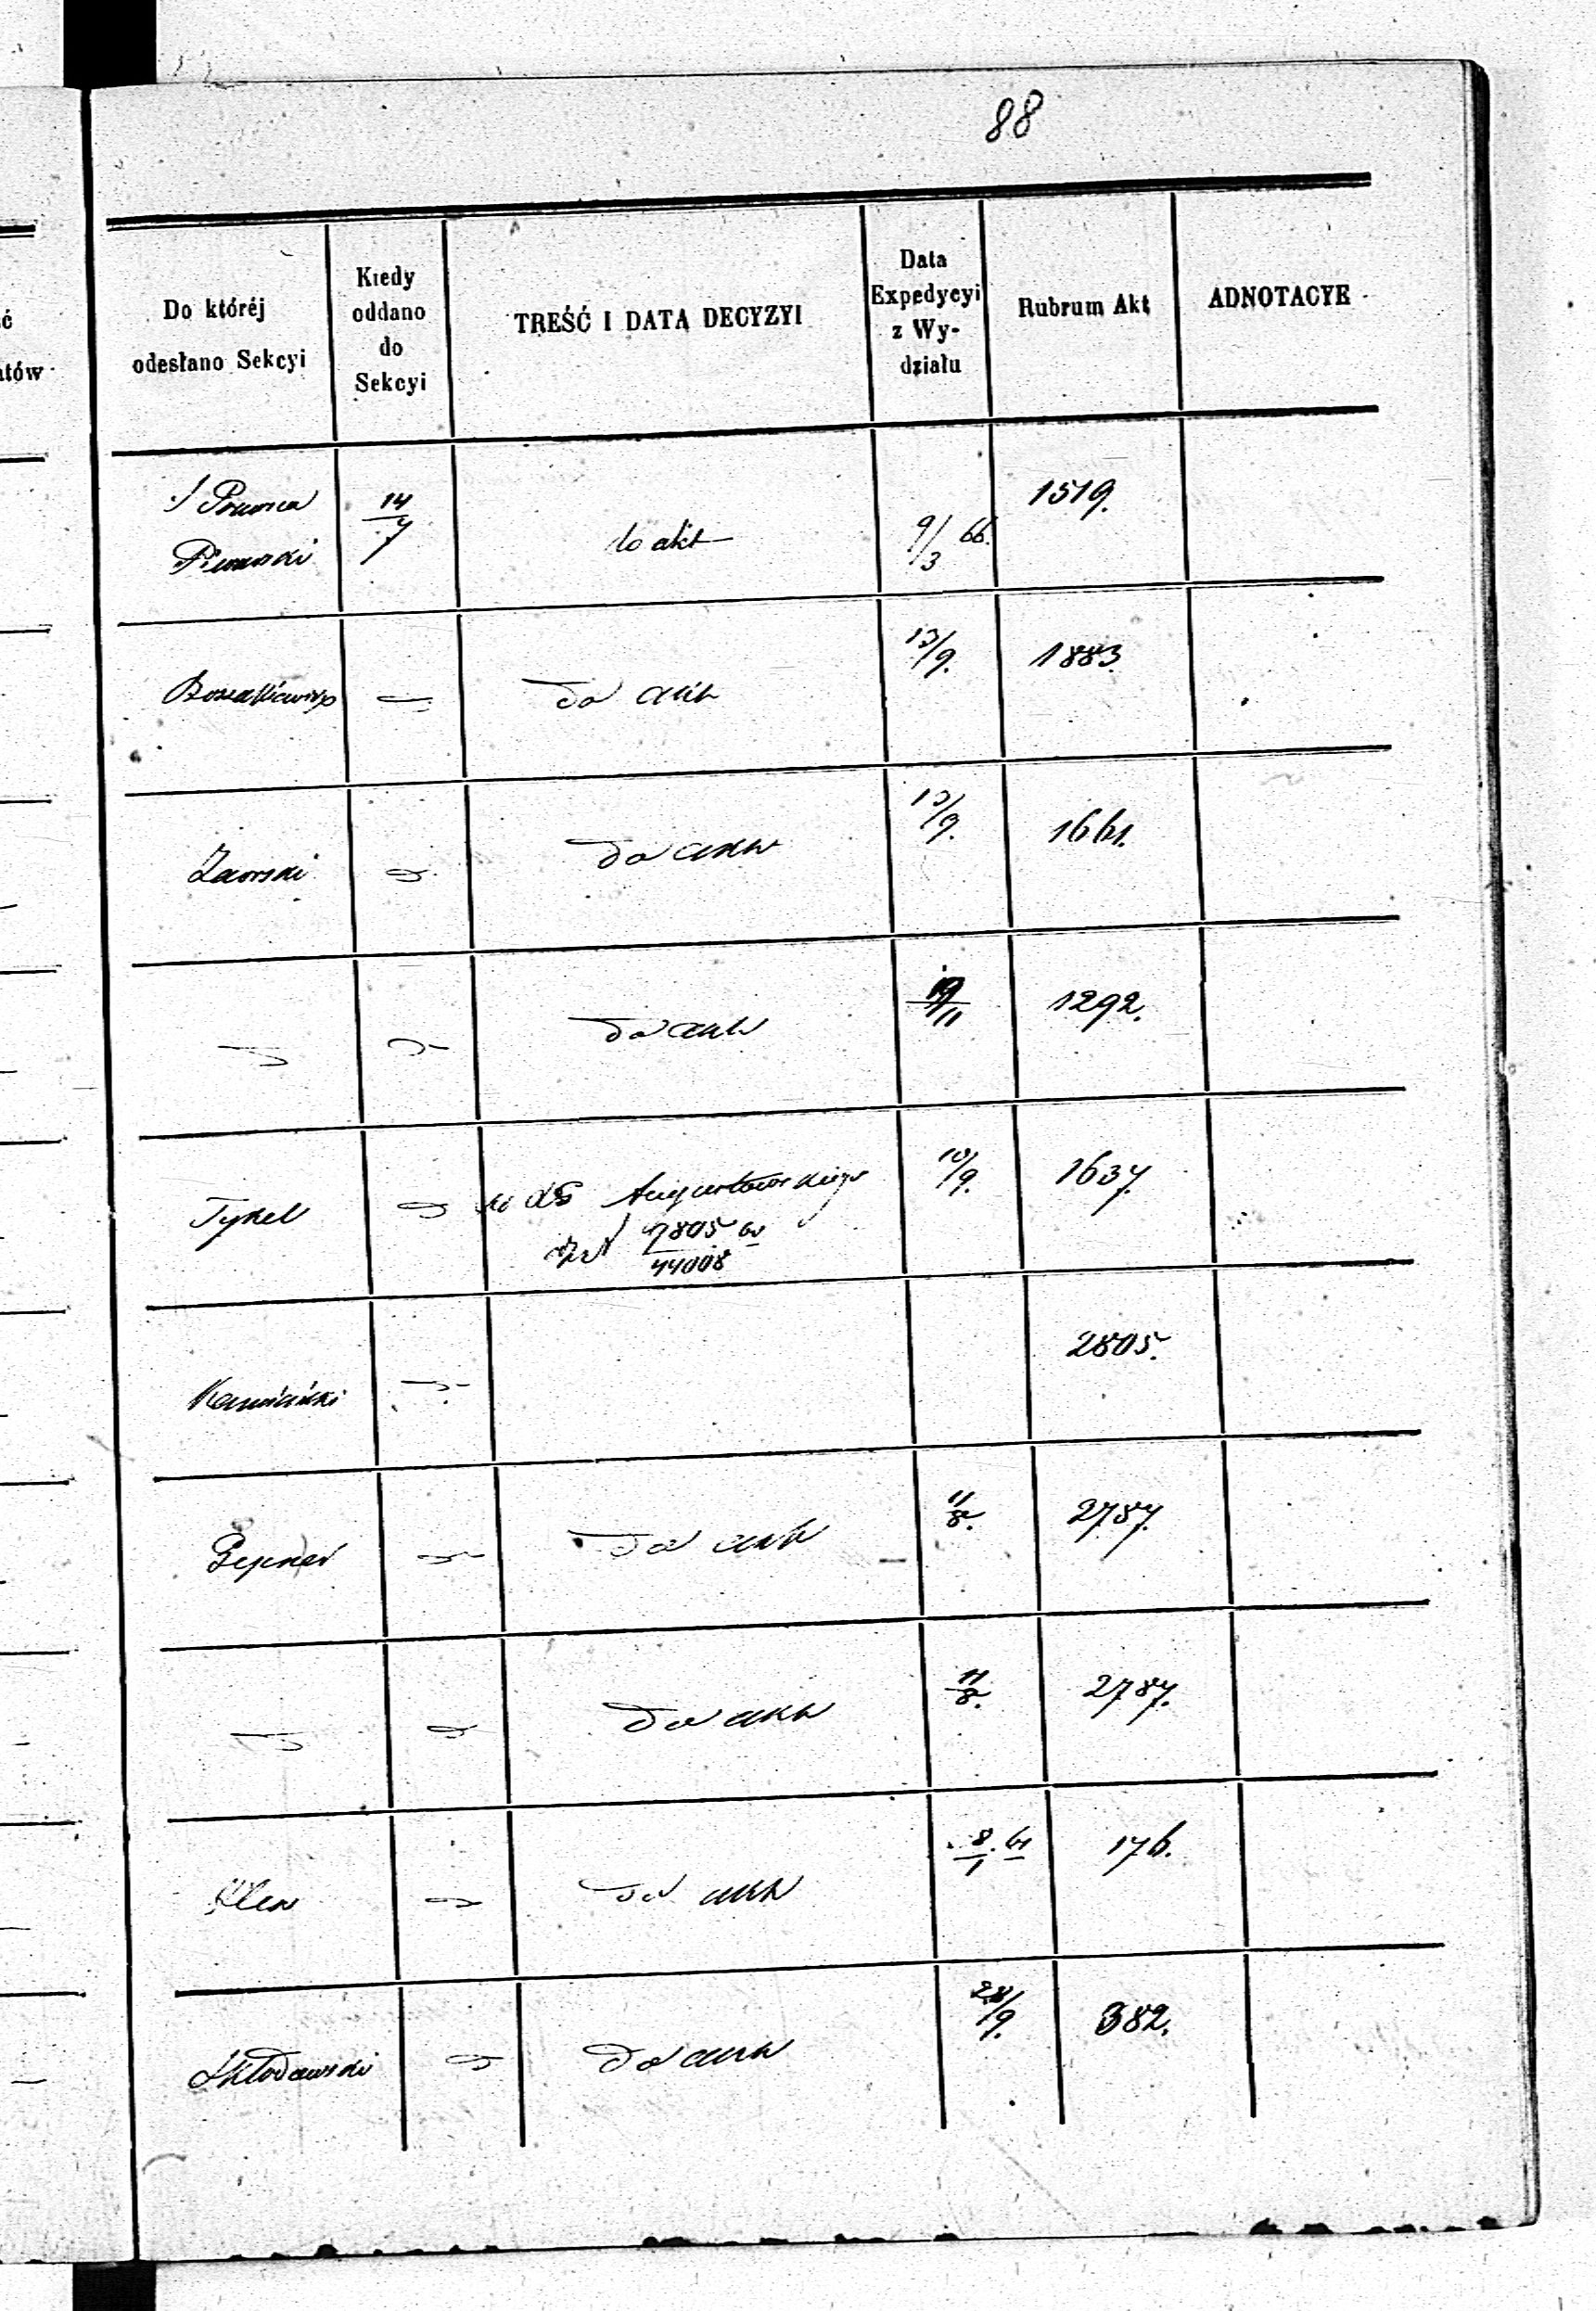 88
Do któréj
odesłano Sekcyi
Kiedy
oddano
do
Sekcyi
TREŚĆ I DATA DECYZYI
Data
Expedycyi
z Wy-
działu
Rubrum Akt
ADNOTACYE
ć
tów
14/7
do akt
9/3 66.
1519.
13/9.
do akt
1883.
Zaorski
do akt
13/9.
1661.
do akt
19/11
1292.
Tykel
do Augustowskiego
7805
44008
10/9.
1637.
Kamiński
2805.
do akt
11/8.
2787.
do akt
11/8.
2787.
do akt
8/1
176.
Skłodowski
do akt
28/9.
382.